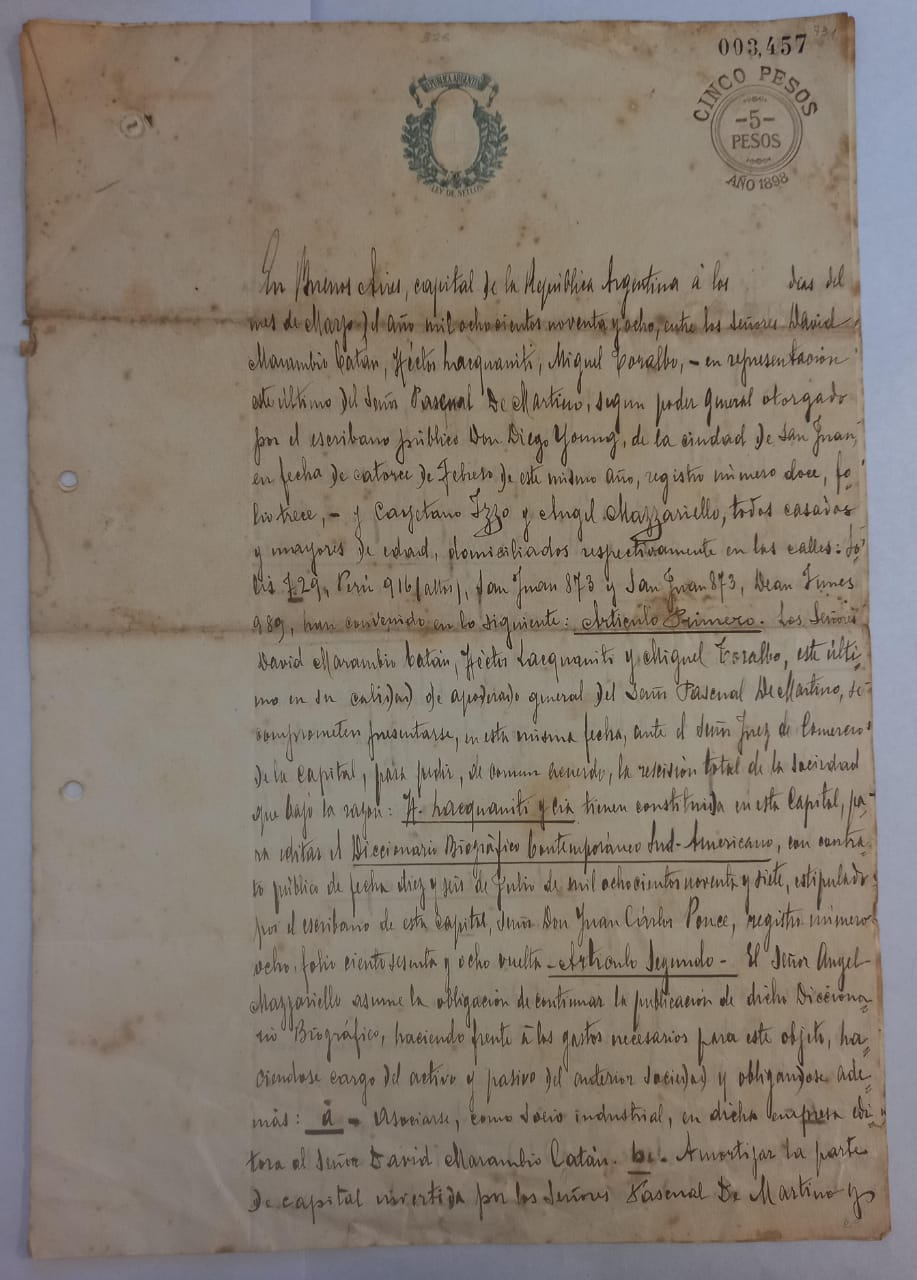 326
731
003,457
REPUBLICA ARGENTINA
LEY DE SELLOS
CINCO PESOS
-5-
PESOS
AÑO 1898
En Buenos Aires, capital de la República Argentina á los dias del
mes de Marzo del año mil ochocientos noventa y ocho, entre los Señores David
Marambio Catán, Héctor Lacquaniti, Miguel Toralbo, - en representación
este último del Señor Pascual De Martino, segun poder general otorgado
por el escribano público Don Diego Young, de la ciudad de San Juan,
en fecha de catorce de Febrero de este mismo año, registro número doce, fo-
lio trece, - y Cayetano Izzo y Angel Mazzariello, todos casados
y mayores de edad, domiciliados respectivamente en las calles: So-
lis 729, Perú 916 (altos), San Juan 873 y San Juan 873, Dean Funes
989, han convenido en lo siguiente: Artículo Primero. Los Señores
David Marambio Catán, Héctor Lacquaniti y Miguel Toralbo, este últi-
mo en su calidad de apoderado general del Señor Pascual De Martino, se
comprometen presentarse, en esta misma fecha, ante el Señor Juez de Comercio
de la capital, para pedir, de comun acuerdo, la rescisión total de la sociedad
que bajo la razón: H. Lacquaniti y cia tienen constituida en esta Capital, pa-
ra editar el Diccionario Biográfico Contemporáneo Sud-Americano, con contra-
to público de fecha diez y seis de Julio de mil ochocientos noventa y siete, estipulado
por el escribano de esta capital, Señor Don Juan Cárlos Ponce, registro número
ocho, folio ciento sesenta y ocho vuelta - Artículo Segundo - El Señor Angel
Mazzariello asume la obligación de continuar la publicación de dicho Dicciona-
rio Biográfico, haciendo frente á los gastos necesarios para este objeto, ha-
ciendose cargo del activo y pasivo del anterior sociedad y obligandose ade-
más: a - Asociarse, como socio industrial, en dicha empresa edi-
tora al Señor David Marambio Catán. b. Amortizar la parte
de capital invertida por los Señores Pascual De Martino y